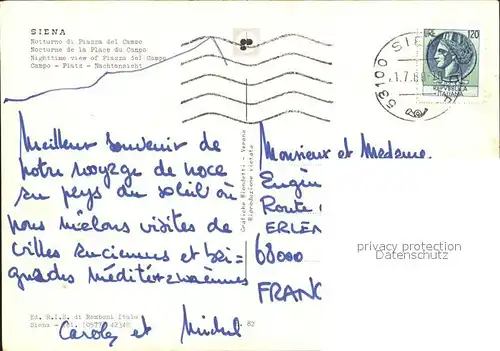 SIENA
Notturno di Piazza del Campo
Nocturne de la Place du Campo
Nighttime view of Piazza del Campo
Campo - Platz - Nachtansicht
53100 SIE
.1.7.6
120
REPVBBLICA
ITALIANA
Meilleur souvenir de
notre voyage de noce
au pays du soleil où
nous mêlons visites de
villes anciennes et bai-
gnades méditérranéennes
Caroles et Michel
Grafiche Biondetti - Verona
Riproduzione vietata
Monsieur et Madame
Eugèn
Route
ERLEN
68000
FRANC
privacy protection
Datenschutz
Ed. R.I.S. di Romboni Italo
Siena - Tel. (0577) 42348
- 82